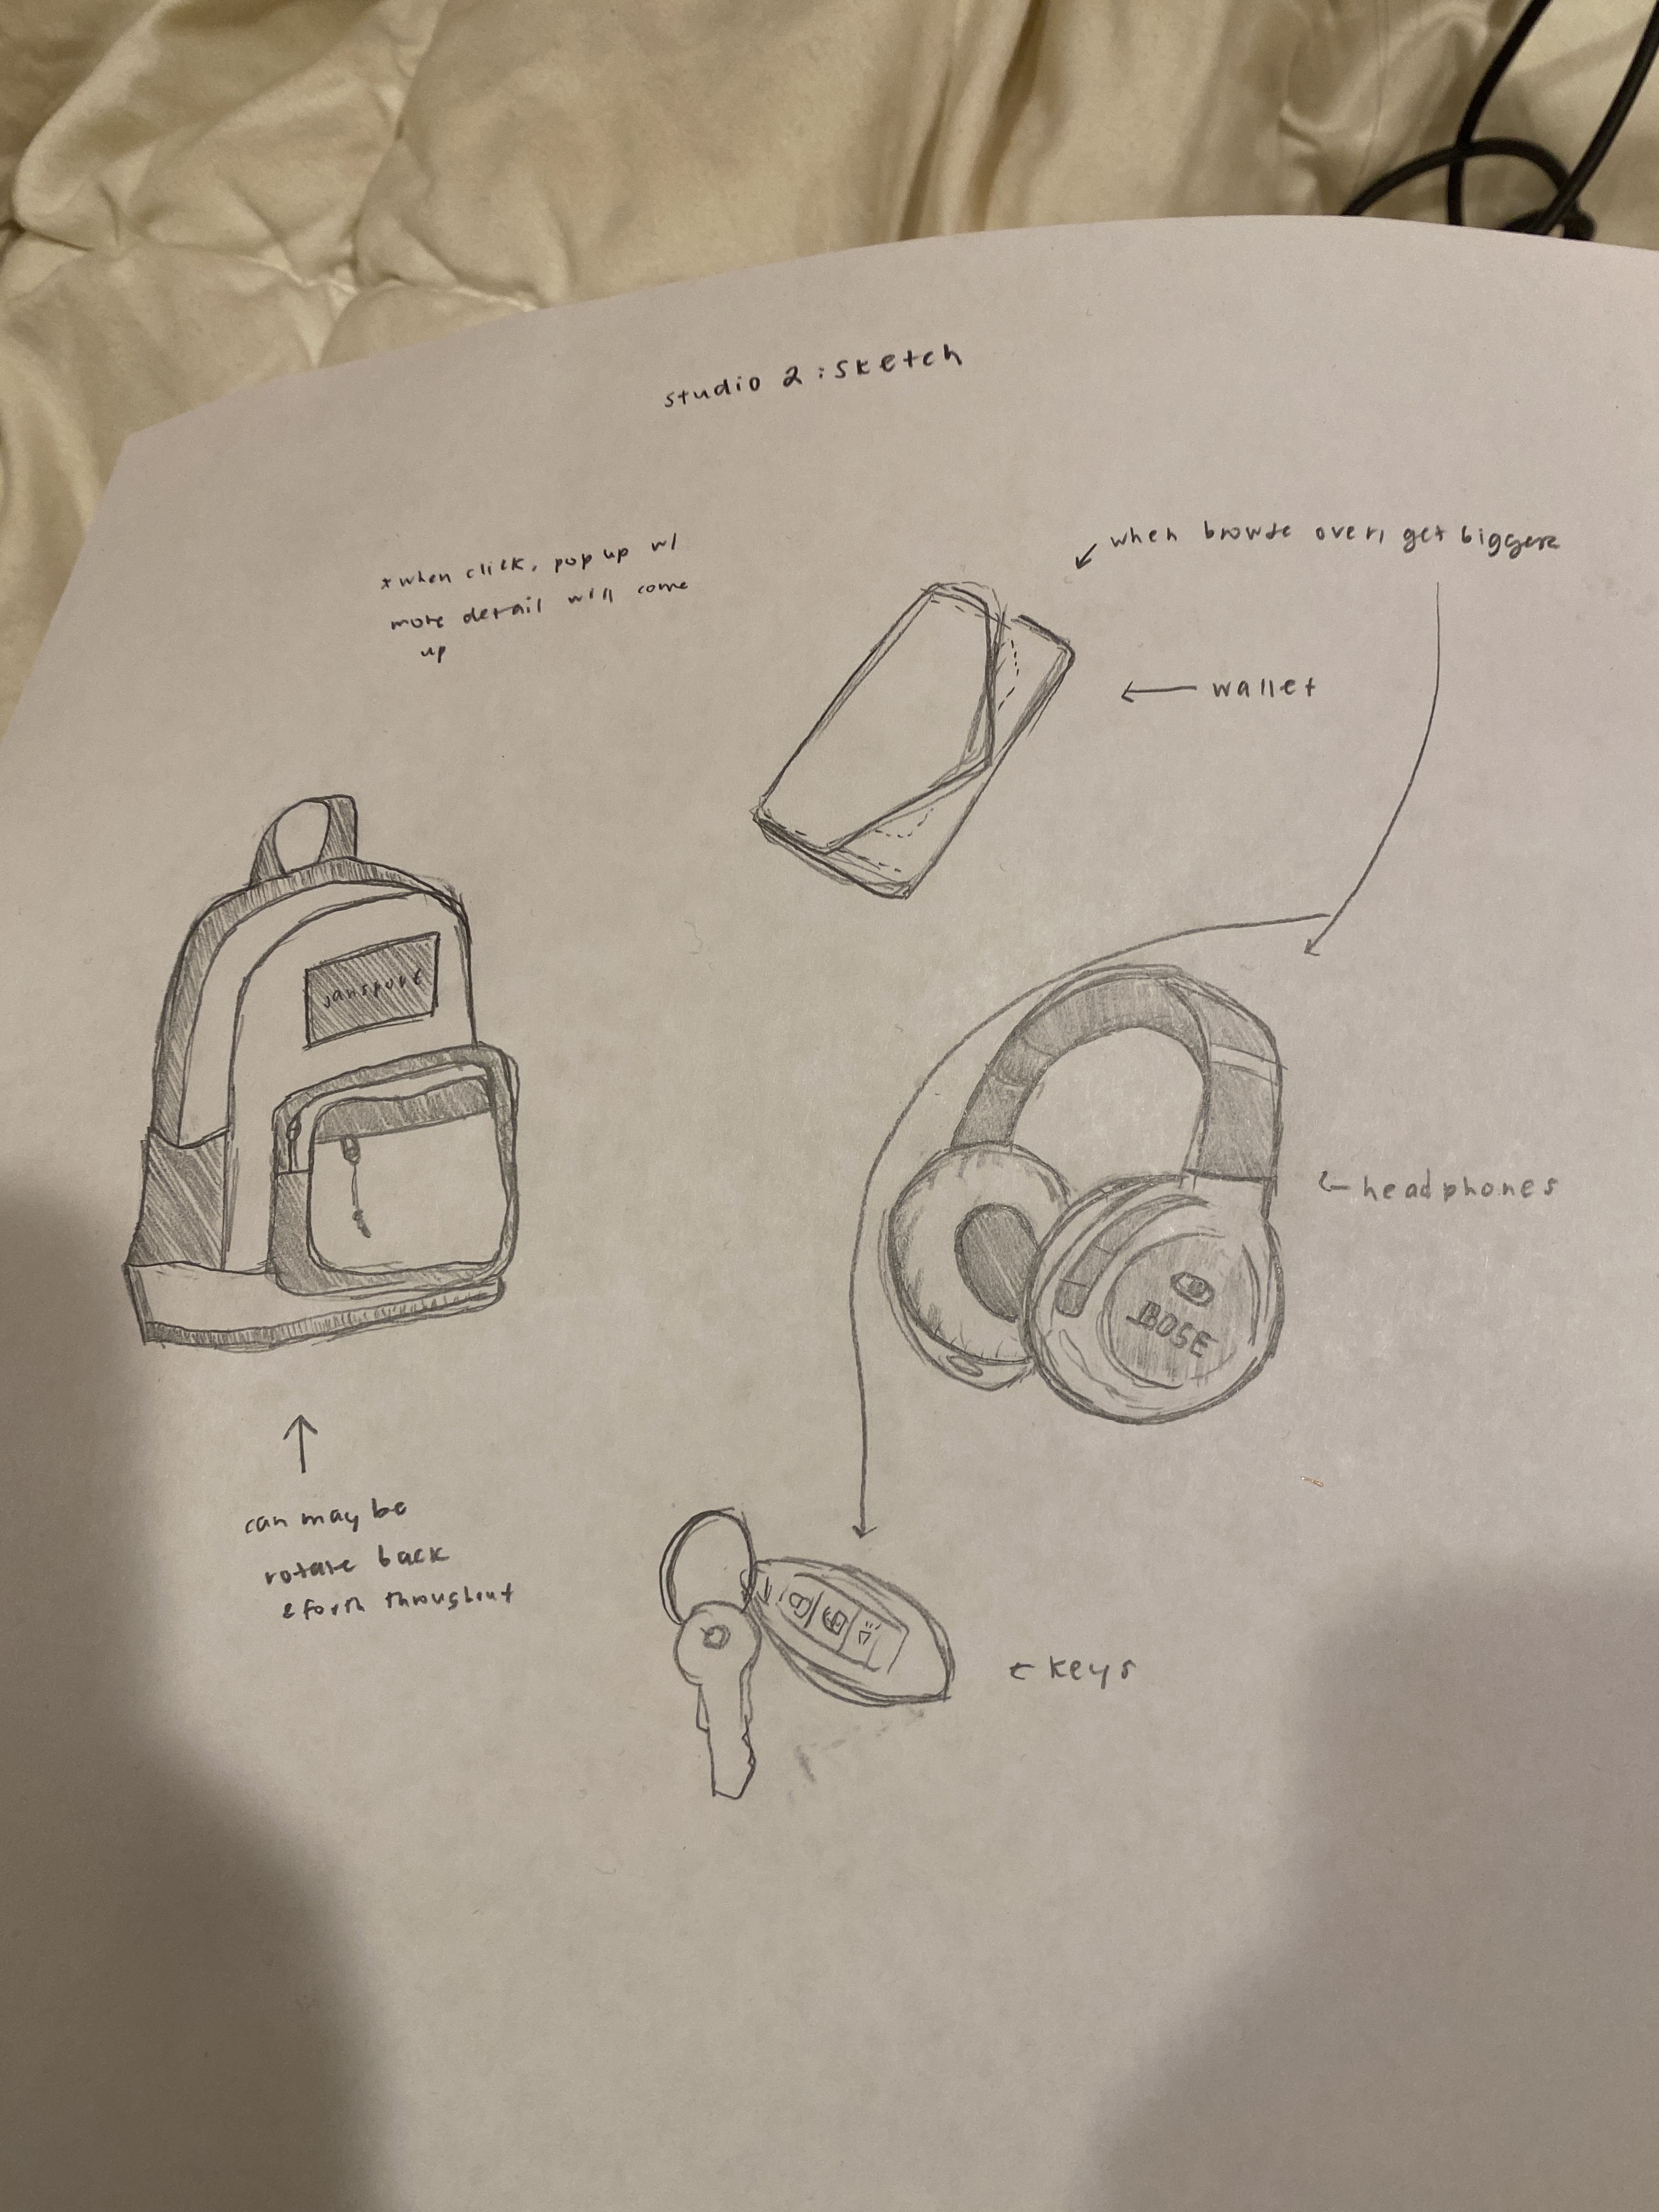 studio 2 : sketch
* when click, pop up w/
more detail will come
up
when browse over, get biggere
wallet
Jansport
headphones
BOSE
can may be
rotate back
& forth throughout
keys